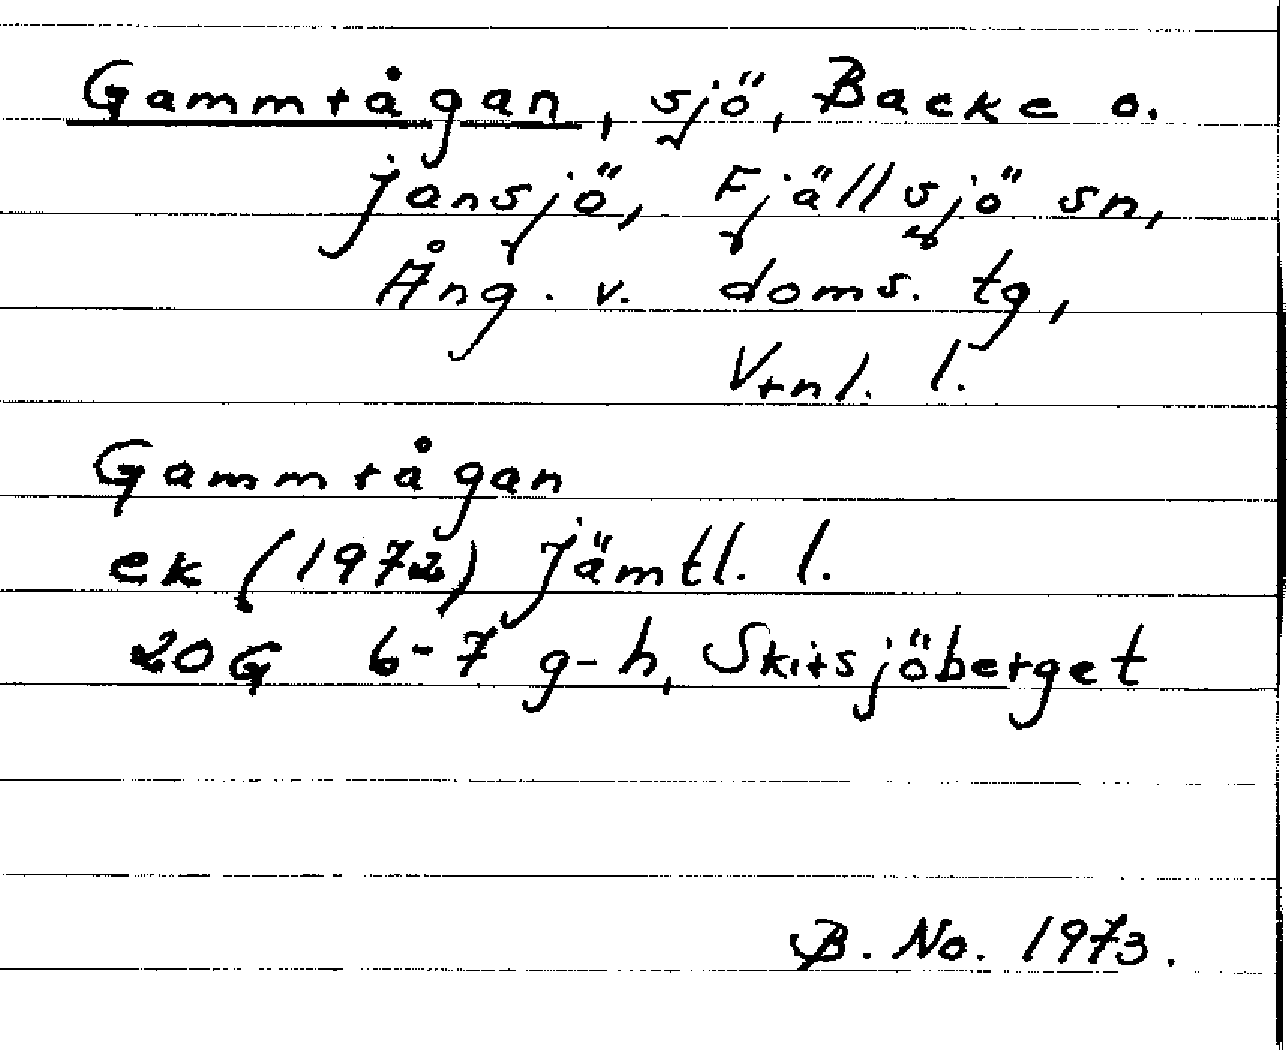 Gammrågan, sjö, Backe o.
Jansjö, Fjällsjö sn,
Ång. v. doms. tg,
Vrnl. l.
Gammrågan
ek (1972) Jämtl. l.
20G 6-7 g-h, Skirsjöberget
B. No. 1973.